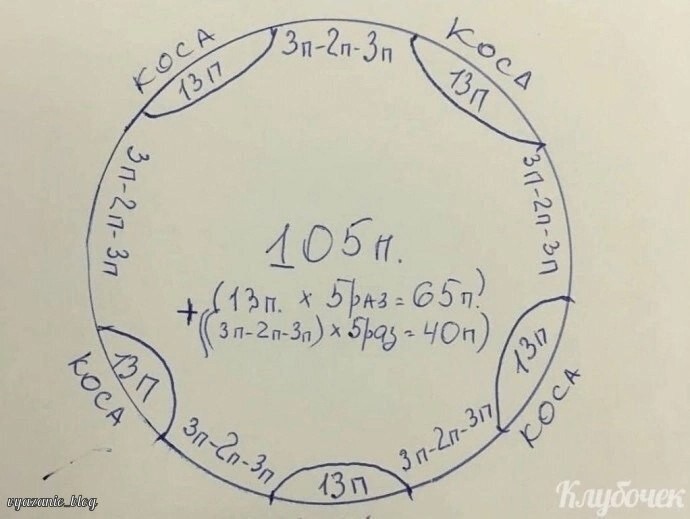 КОСА
13п
3п-2п-3п
КОСА
13п
3п-2п-3п
3п-2п-3п
105п.
+(13п. х 5раз=65п.)
((3п-2п-3п)х5раз=40п)
13п
КОСА
13п
КОСА
3п-2п-3п
3п-2п-3п
13п
vyazanie_blog
Клубочек